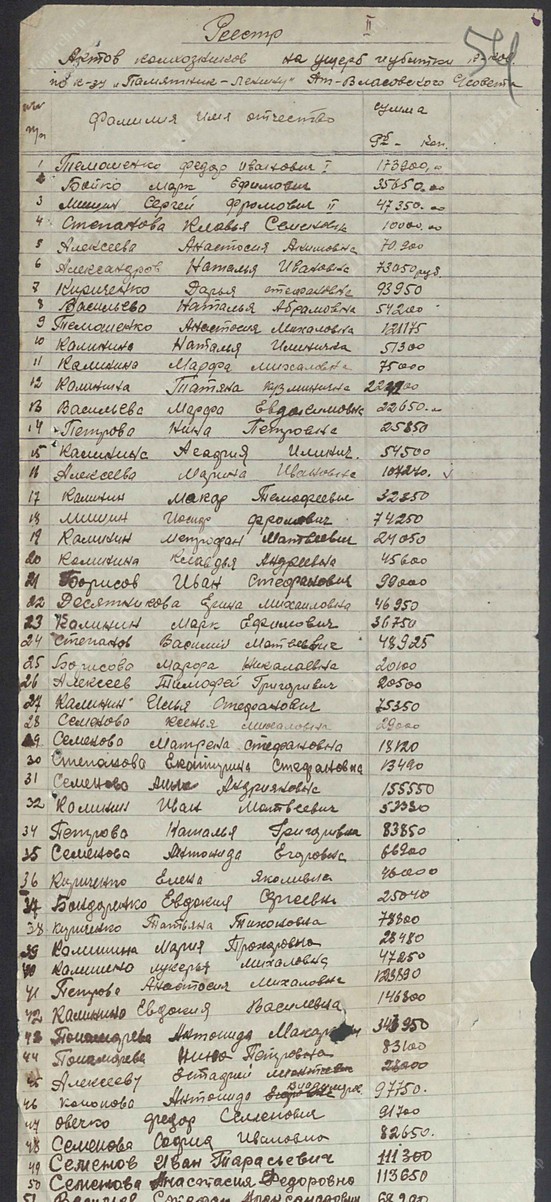 Реестр II
54
Актов колхозников на ущерб и убытки
по к-зу „Памятник-Ленину“ Ат-Власовского С/совета
№№ п/п фамилия имя отчество сумма
Руб - Коп.
1 Тимошенко Федор Иванович I 173200,00
2 Бойко Марк Ефимович 35650.00
3 Мишин Сергей Фромович II 47350.00
4 Степанова Клавья Семеновна 10000,00
5 Алексеева Анастосия Акимовна 70200
6 Александров Наталья Ивановна 73050 руб.
7 Кириченко Дарья Стефановна 93950
8 Васильева Наталья Абрамовна 54200
9 Темошенко Анастосия Михаловна 121175
10 Калинина Наталья Илинична 51300
11 Калинина Марфа Михаловна 75000
12 Калинина Татяна Кузминична
13 Васильева Марфа Евдокимовна 22650.-
14 Петрова Нина Петровна 25850
15 Калинина Агафия Илинич. 54500
16 Алексеева Марина Ивановна 107270. v
17 Калинин Макар Темофеевич 32850
18 Мишин Иосиф Фромович 74250
19 Калинин Метрофан Матвеевич 24050
20 Калинина Клавдья Андреевна 45600
21 Борисов Иван Стефанович 99000
22 Десятникова Ерина Михаиловна 46950
23 Калинин Марк Ефимович 36750
24 Степанов Василий Матвеевич 48925
25 Борисова Марфа Николаевна 20100
26 Алексеев Тимофей Григоривич 20500
27 Калинин Илья Стефанович 75350
28 Семенова Ксенья Михаловна 29000
29 Семенова Матрена Стефановна 18120
30 Степанова Екатирина Стефановна 13490
31 Семенова Анна Андрияновна 155550
32 Калинин Иван Матвеевич
34 Петрова Наталья Григоривна 83850
35 Семенова Антонида Егоровна 66200
36 Кириченко Елена Яколивна
37 Бондаренко Евдокия Сергеевн 25040
38 Кириченко Татьяна Тихоновна 78800
39 Калинина Мария Прохоровна 28480
40 Калинено Лукерья Михаловна 47250
41 Петрова Анастосия Михаловна
42 Калинина Евдокия Василевна 146800
43 Понамарева Антонида Макар
44 Понамарева Нина Петровна 83100
45 Алексееву Естафий
46 Кононова Антонида 97750.
47 Овечко Федор Семенович 91700
48 Семенова София Ивановна 82650.
49 Семенов Иван Тарасьевич 111300
50 Семенова Анастасия Федоровно 113650
51 Стефан Александрович